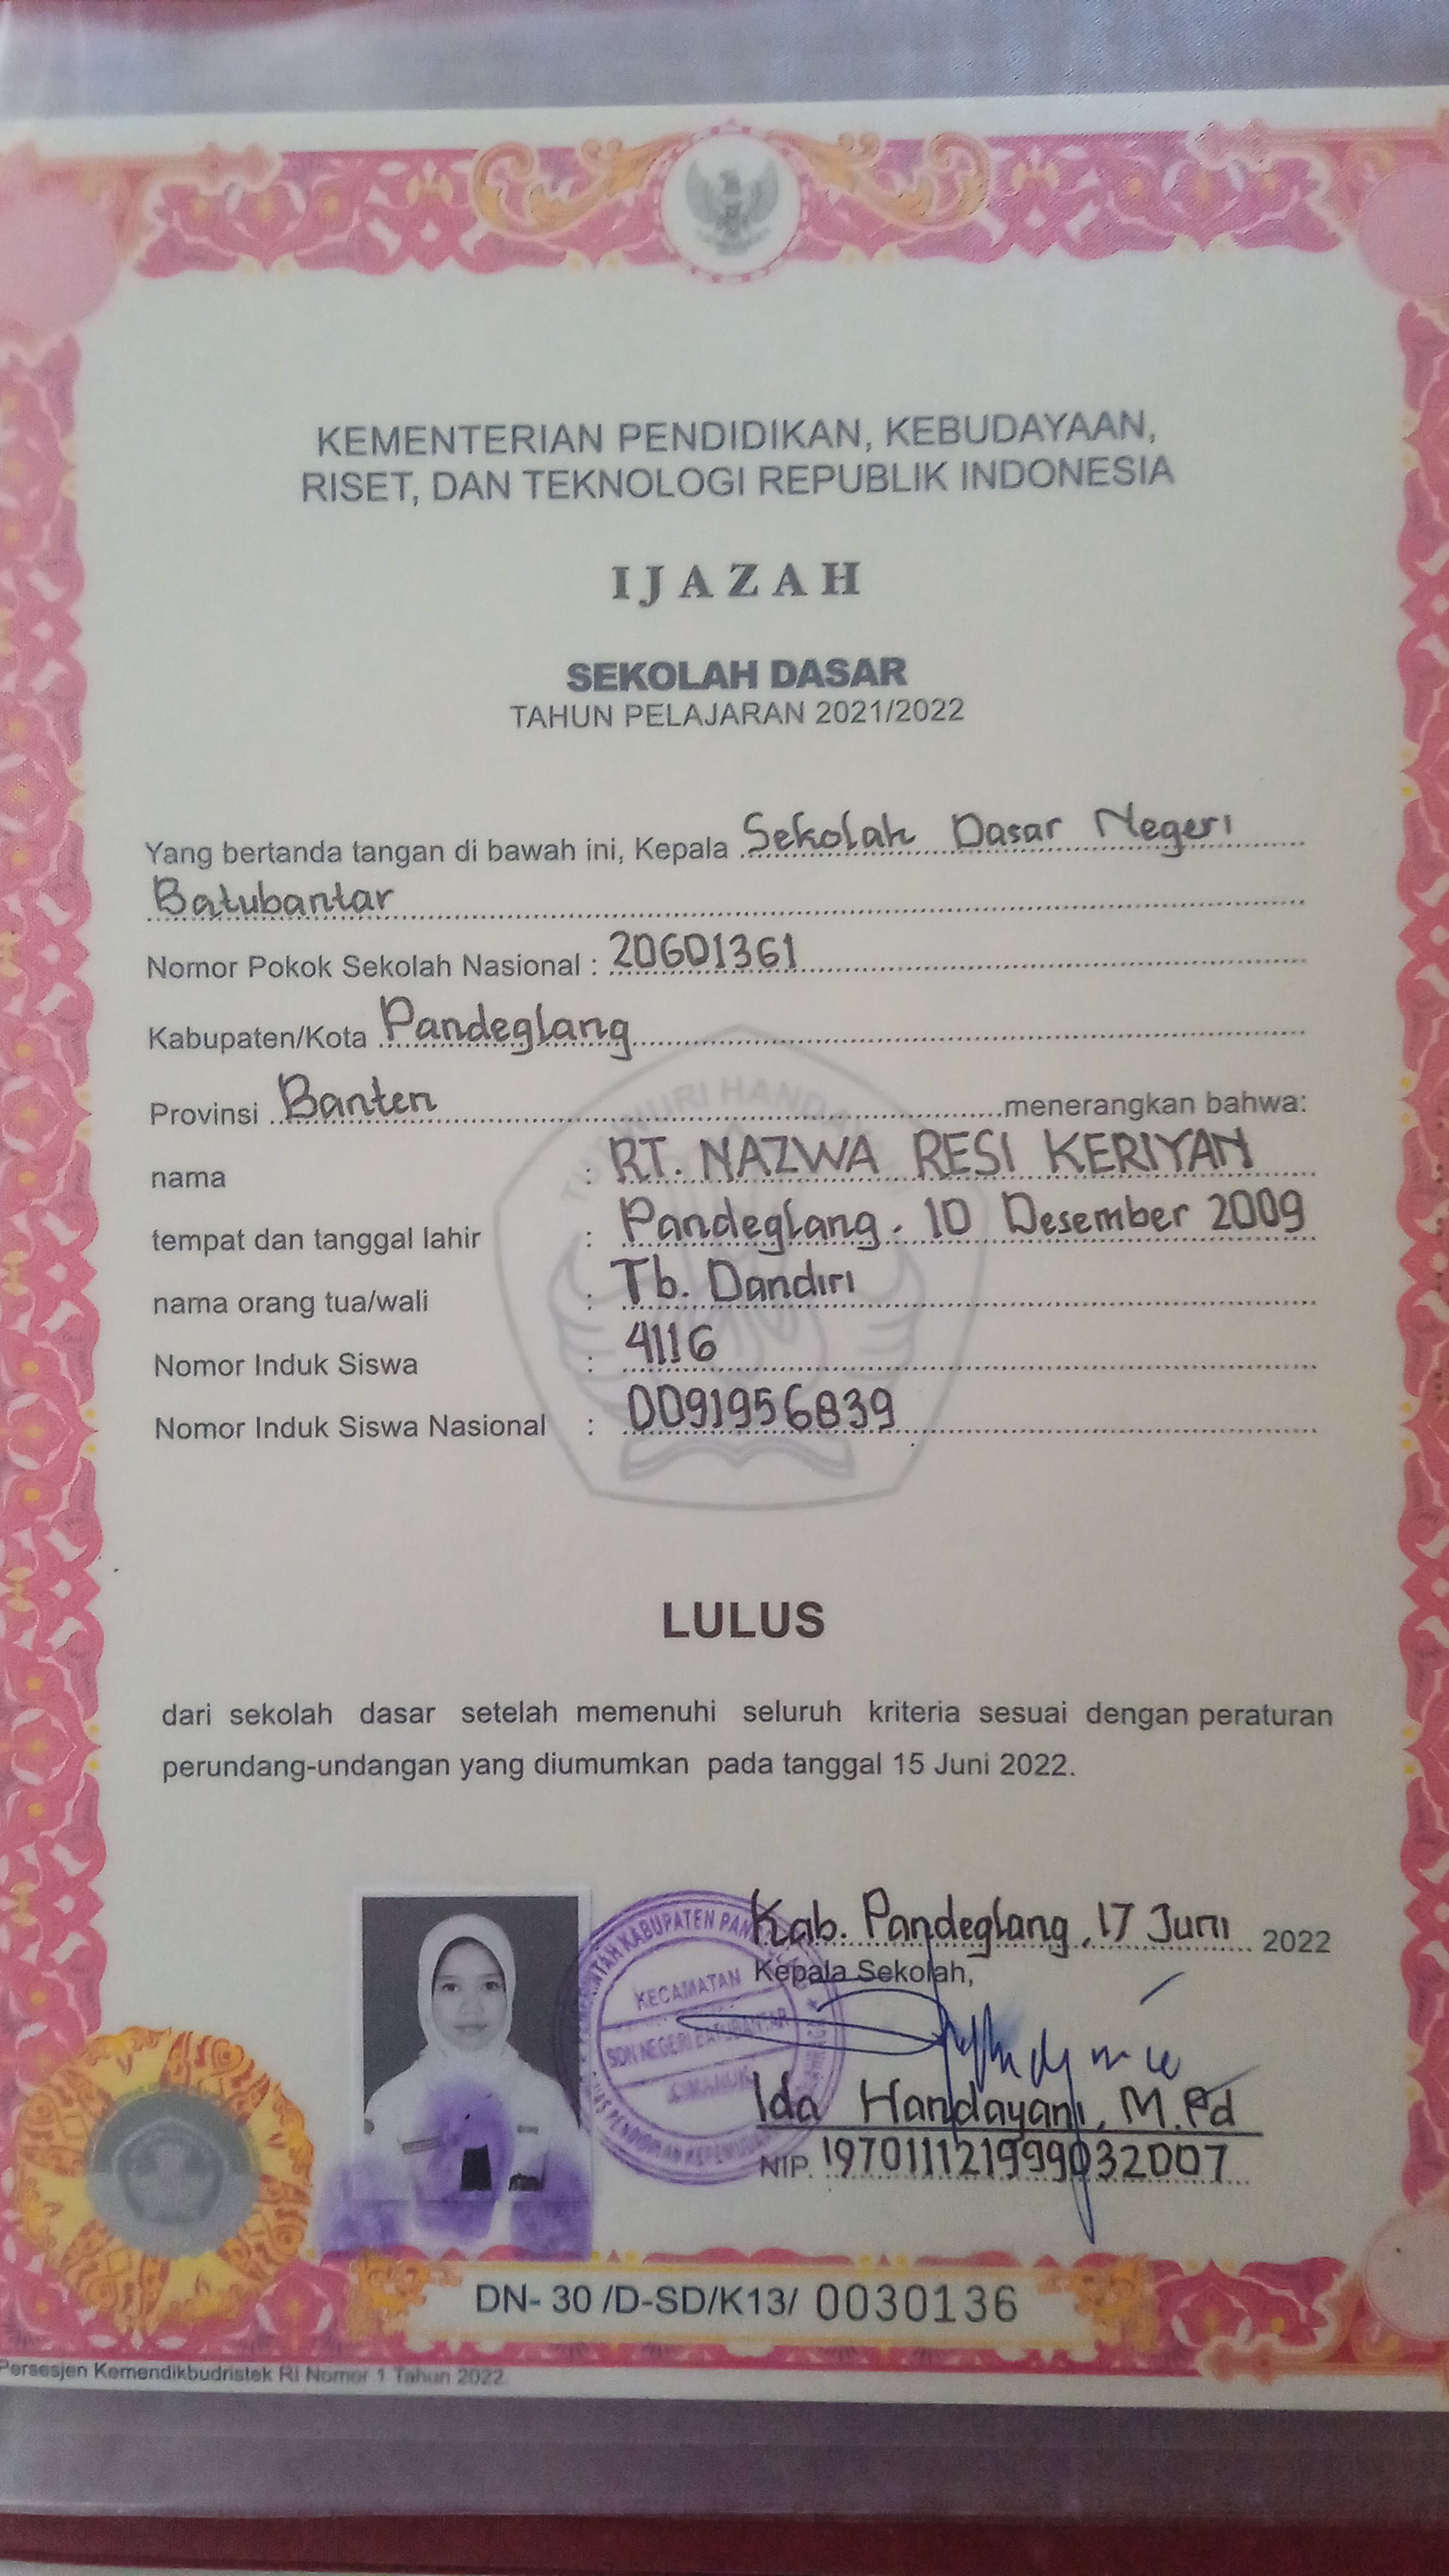 KEMENTERIAN PENDIDIKAN, KEBUDAYAAN,
RISET, DAN TEKNOLOGI REPUBLIK INDONESIA
IJAZAH
SEKOLAH DASAR
TAHUN PELAJARAN 2021/2022
Yang bertanda tangan di bawah ini, Kepala Sekolah Dasar Negeri
Batubantar
Nomor Pokok Sekolah Nasional : 20601361
Kabupaten/Kota Pandeglang
Provinsi Banten menerangkan bahwa:
nama : RT. NAZWA RESI KERIYAN
tempat dan tanggal lahir : Pandeglang, 10 Desember 2009
nama orang tua/wali : Tb. Dandiri
Nomor Induk Siswa : 4116
Nomor Induk Siswa Nasional : 0091956839
LULUS
dari sekolah dasar setelah memenuhi seluruh kriteria sesuai dengan peraturan
perundang-undangan yang diumumkan pada tanggal 15 Juni 2022.
Kab. Pandeglang, 17 Juni 2022
Kepala Sekolah,
KECAMATAN
SDN NEGERI BATUBANTAR
Ida Handayani, M.Pd
NIP. 197011121999032007
DN- 30 /D-SD/K13/ 0030136
Persesjen Kemendikbudristek RI Nomor 1 Tahun 2022